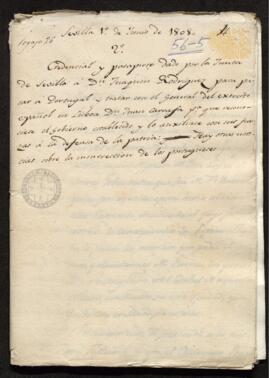 Legajo 76 Sevilla 1º de Junio de 1808.
2º
56-5
Credencial y pasaporte dado por la Junta
de Sevilla á Dn Joaquin Rodriguez para pa
sar á Portugal y tratar con el general del exercito
español en Lisboa Dn Juan Carrafa pa que recono
ciera el gobierno establecido y le auxilie con sus fuer
zas á la defensa de la patria. Hay otras noti
cias sobre la insurreccion de los portugueses